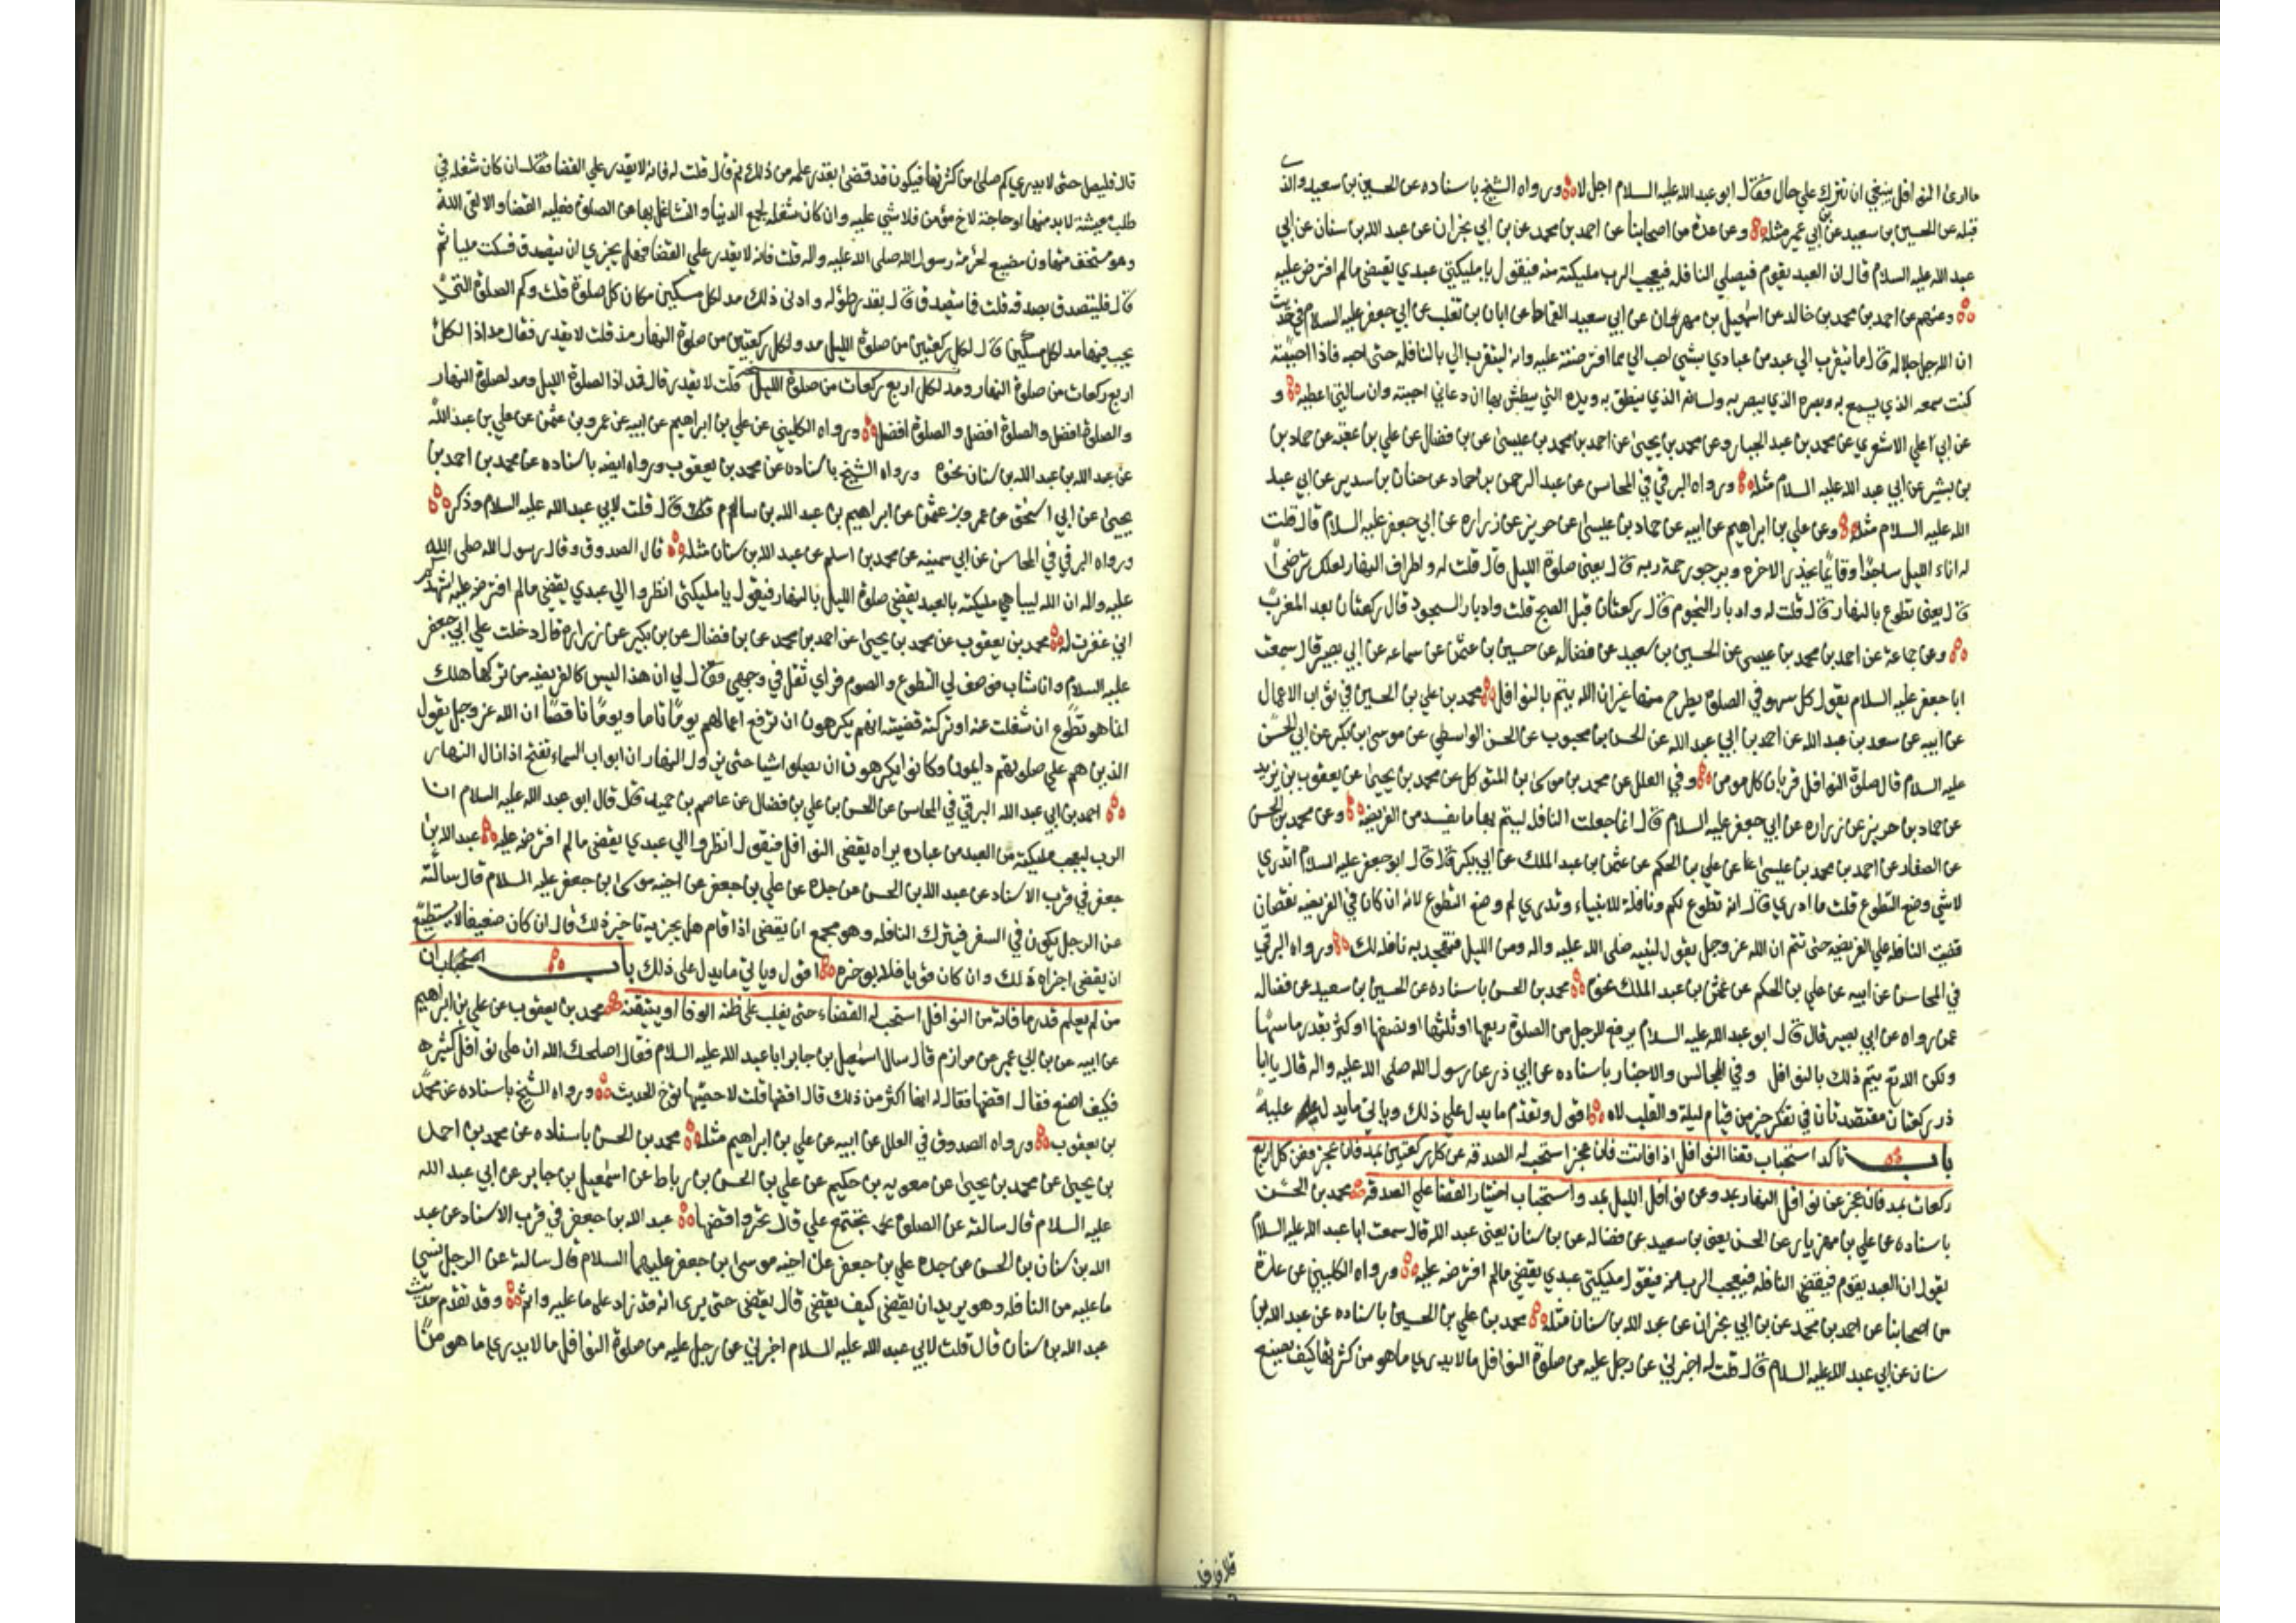 ما ارى النوافل ينبغي ان تترك علي حال فقال ابو عبد الله عليه السلام اجل لا ورواه الشيخ باسناده عن الحسين بن سعيد والذي
قبله عن الحسين بن سعيد عن ابن ابي عمير مثله وعن عدة من اصحابنا عن احمد بن محمد عن بن ابي نجران عن عبد الله بن سنان عن ابي
عبد الله عليه السلام قال ان العبد يقوم فيصلي النافله فيعجب الرب مليكته منه فيقول يا مليكتي عبدي يقضي ما لم افترض عليه
وعنهم عن احمد بن محمد بن خالد عن اسمعيل بن مهران عن ابي سعيد القماط عن ابان بن تغلب عن ابي جعفر عليه السلام في حديث
ان الله جل جلاله قال ما تقرب الي عبد من عبادي بشي احب الي مما افترضت عليه وانه ليتقرب الي بالنافله حتى احبه فاذا احببته
كنت سمعه الذي يسمع به وبصره الذي يبصر به ولسانه الذي ينطق به ويده التي يبطش بها ان دعاني اجبته وان سالني اعطيه و
عن ابي علي الاشعري عن محمد بن عبد الجبار وعن محمد بن يحيى عن احمد بن محمد بن عيسى عن بن فضال عن علي بن عقبه عن حماد بن
بن بشير عن ابي عبد الله عليه السلام مثله ورواه البرقي في المحاسن عن عبد الرحمن بن حماد عن حنان بن سدير عن ابي عبد
الله عليه السلام مثله وعن علي بن ابراهيم عن ابيه عن حماد بن عيسى عن حريز عن زراره عن ابي جعفر عليه السلام قال قلت
له اناء الليل ساجدا وقائما يحذر الاخره ويرجو رحمة ربه قال يعني صلوة الليل قال قلت له واطراف النهار لعلك ترضى
قال يعني تطوع بالنهار قال قلت له وادبار النجوم قال ركعتان قبل الصبح قلت وادبار السجود قال ركعتان بعد المغرب
وعن جماعة عن احمد بن محمد بن عيسى عن الحسين بن سعيد عن فضاله عن حسين بن عثمن عن سماعه عن ابي بصير قال سمعت
ابا جعفر عليه السلام يقول كل سهو في الصلوة يطرح منها غير ان الله يتم بالنوافل محمد بن علي بن الحسين في ثواب الاعمال
عن ابيه عن سعد بن عبد الله عن احمد بن ابي عبد الله عن الحسن بن محبوب عن الحسن الواسطي عن موسى بن بكر عن ابي الحسن
عليه السلام قال صلوة النوافل قربان كل مومن وفي العلل عن محمد بن موسى بن المتوكل عن محمد بن يحيى عن يعقوب بن يزيد
عن حماد بن حريز عن زراره عن ابي جعفر عليه السلام قال انما جعلت النافله ليتم بها ما يفسد من الفريضه وعن محمد بن الحسن
عن الصفار عن احمد بن محمد بن عيسى عن علي بن الحكم عن عثمن بن عبد الملك عن ابي بكر قال قال ابو جعفر عليه السلام اتدري
لاي شي وضع التطوع قلت ما ادري قال انه تطوع لكم ونافلة للانبياء وتدري لم وضع التطوع لانه ان كان في الفريضه نقصان
قضيت النافله علي الفريضه حتى تتم ان الله عز وجل يقول لنبيه صلى الله عليه واله ومن الليل فتهجد به نافله لك ورواه البرقي
في المحاسن عن ابيه عن علي بن الحكم عن عثمن بن عبد الملك نحوه محمد بن الحسن باسناده عن الحسين بن سعيد عن فضاله
عمن رواه عن ابي بصير قال قال ابو عبد الله عليه السلام يرفع للرجل من الصلوة ربعها او ثلثها او نصفها او اكثر بقدر ما سها
ولكن الله تع يتم ذلك بالنوافل وفي المجالس والاخبار باسناده عن ابي ذر عن رسول الله صلى الله عليه واله قال يا ابا
ذر ركعتان مقتصدتان في تفكر خير من قيام ليلة والقلب لاه اقول وتقدم ما يدل علي ذلك وياتي ما يدل عليه
باب تاكد استحباب قضا النوافل اذا فاتت فان عجز استحب له الصدقه عن كل ركعتين بمد فان عجز فعن كل اربع
ركعات بمد فان عجز عن نوافل النهار بمد وعن نوافل الليل بمد واستحباب اختيار القضا علي الصدقه محمد بن الحسن
باسناده عن علي بن مهزيار عن الحسن يعني بن سعيد عن فضاله عن بن سنان يعني عبد الله قال سمعت ابا عبد الله عليه السلام
يقول ان العبد يقوم فيقضي النافله فيعجب الرب منه فيقول مليكتي عبدي يقضي ما لم افترضه عليه ورواه الكليني عن عدة
من اصحابنا عن احمد بن محمد عن بن ابي نجران عن عبد الله بن سنان مثله محمد بن علي بن الحسين باسناده عن عبد الله بن
سنان عن ابي عبد الله عليه السلام قال قلت له اخبرني عن رجل عليه من صلوة النوافل ما لا يدري ما هو من كثرتها كيف يصنع
قال فليصل حتى لا يدري كم صلى من كثرتها فيكون قد قضى بقدر علمه من ذلك ثم قال قلت له فانه لا يقدر علي القضا فقال ان كان شغله في
طلب معيشة لا بد منها او حاجة لاخ مؤمن فلا شي عليه وان كان شغله لجمع الدنيا والتشاغل بها عن الصلوة فعليه القضا والا لقى الله
وهو مستخف متهاون مضيع لحرمة رسول الله صلى الله عليه واله قلت فانه لا يقدر علي القضا فهل يجزي ان يتصدق فسكت مليا ثم
قال فليتصدق بصدقه قلت فما يتصدق قال بقدر طوله وادنى ذلك مد لكل مسكين مكان كل صلوة قلت وكم الصلوة التي
يجب فيها مد لكل مسكين قال لكل ركعتين من صلوة الليل مد ولكل ركعتين من صلوة النهار مد قلت لا يقدر فقال مد اذا لكل
اربع ركعات من صلوة النهار ومد لكل اربع ركعات من صلوة الليل قلت لا يقدر قال فمد اذا لصلوة الليل ومد لصلوة النهار
والصلوة افضل والصلوة افضل والصلوة افضل ورواه الكليني عن علي بن ابراهيم عن ابيه عن عمرو بن عثمن عن علي بن عبد الله
عن عبد الله بن عبد الله بن سنان نحوه ورواه الشيخ باسناده عن محمد بن يعقوب ورواه ايضه باسناده عن محمد بن احمد بن
يحيى عن ابي اسحق عن عمرو بن عثمن عن ابراهيم بن عبد الله بن سام قال قلت لابي عبد الله عليه السلام وذكر
ورواه البرقي في المحاسن عن ابي سمينه عن محمد بن اسلم عن عبد الله بن سنان مثله قال الصدوق وقال رسول الله صلى الله
عليه واله ان الله ليباهي مليكته بالعبد يقضي صلوة الليل بالنهار فيقول يا مليكتي انظروا الي عبدي يقضي ما لم افترضه عليه اشهدكم
اني غفرت له محمد بن يعقوب عن محمد بن يحيى عن احمد بن محمد عن بن فضال عن بن بكير عن زراره قال دخلت علي ابي جعفر
عليه السلام وانا شاب فوصف لي التطوع والصوم فراي ثقل في وجهي فقال لي ان هذا ليس كالفريضه من تركها هلك
انما هو تطوع ان شغلت عنه او تركته قضيته انهم يكرهون ان ترفع اعمالهم يوما تاما ويوما ناقصا ان الله عز وجل يقول
الذين هم علي صلوتهم دايمون وكانوا يكرهون ان يصلوا شيا حتى يزول النهار ان ابواب السماء تفتح اذا زال النهار
احمد بن ابي عبد الله البرقي في المحاسن عن الحسن بن علي بن فضال عن عاصم بن حميد قال قال ابو عبد الله عليه السلام ان
الرب ليعجب مليكته من العبد من عباده يراه يقضي النوافل فيقول انظروا الي عبدي يقضي ما لم افترضه عليه عبد الله بن
جعفر في قرب الاسناد عن عبد الله بن الحسن عن جده عن علي بن جعفر عن اخيه موسى بن جعفر عليه السلام قال سالته
عن الرجل يكون في السفر فيترك النافله وهو مجمع ان يقضي اذا قام هل يجزيه تاخير ذلك قال ان كان ضعيفا لا يستطيع
ان يقضي اجزاه ذلك وان كان قويا فلا يوخره اقول وياتي ما يدل على ذلك باب استحباب ان
من لم يعلم قدر ما فاته من النوافل استحب له القضاء حتى يغلب على ظنه الوفا او يتيقنه محمد بن يعقوب عن علي بن ابراهيم
عن ابيه عن بن ابي عمير عن مرازم قال سال اسمعيل بن جابر ابا عبد الله عليه السلام فقال اصلحك الله ان علي نوافل كثيره
فكيف اصنع فقال اقضها فقال له انها اكثر من ذلك قال اقضها قلت لا احصيها قال توخ الحديث ورواه الشيخ باسناده عن محمد
بن يعقوب ورواه الصدوق في العلل عن ابيه عن علي بن ابراهيم مثله محمد بن الحسن باسناده عن محمد بن احمد
بن يحيى عن محمد بن يحيى عن معويه بن حكيم عن علي بن الحسن بن رباط عن اسمعيل بن جابر عن ابي عبد الله
عليه السلام قال سالته عن الصلوة تجتمع علي قال تحر واقضها عبد الله بن جعفر في قرب الاسناد عن عبد
الله بن سنان بن الحسن عن جده علي بن جعفر عن اخيه موسى بن جعفر عليهما السلام قال سالته عن الرجل ينسى
ما عليه من النافله وهو يريد ان يقضي كيف يقضي قال يقضي حتى يرى انه قد زاد على ما عليه واتم وقد تقدم حديث
عبد الله بن سنان قال قلت لابي عبد الله عليه السلام اخبرني عن رجل عليه من صلوة النوافل ما لا يدري ما هو من